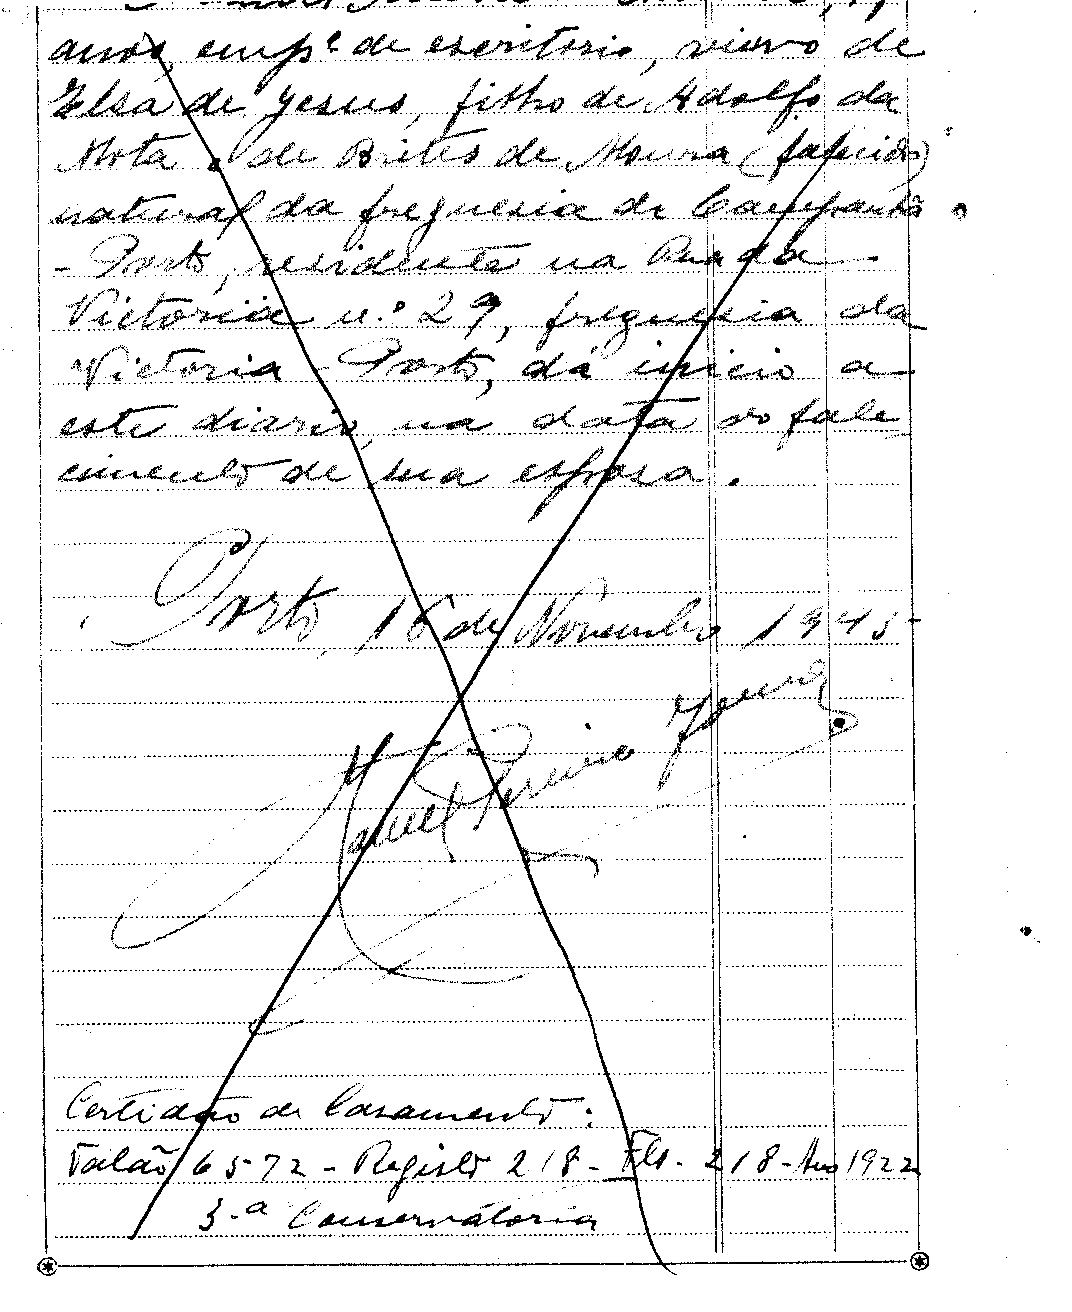 anos, empº de escritorio, viuvo de
Elsa de Jesus, filho de Adolfo da
Mota e de Brites de Moura (falecidos)
natural da freguesia de Campanhã
- Porto, residente na Rua da
Victoria n.º 29, freguesia da
Victoria - Porto, dá inicio a
este diario, na data do fale
cimento de sua esposa.
Porto, 16 de Novembro 1945
Manuel Pereira
Certidão de Casamento:
Talão 6572 - Registo 218 - Fls. 218 - Ano 1922
3.ª Conservatoria